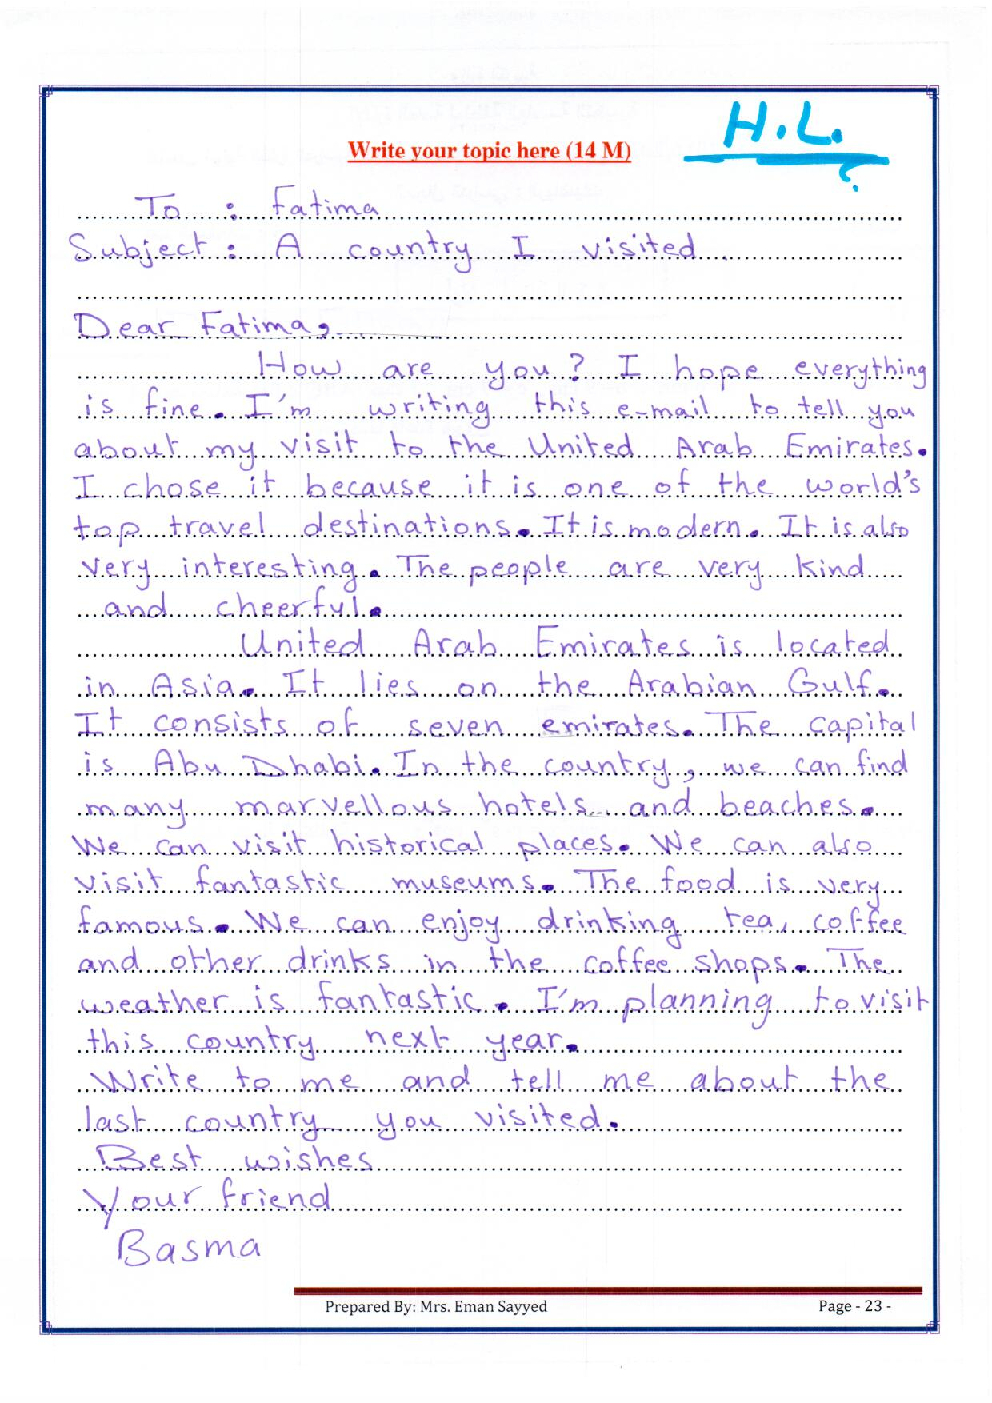 H.L.
Write your topic here (14 M)
To : Fatima
Subject : A country I visited
Dear Fatima,
How are you? I hope everything
is fine. I'm writing this e-mail to tell you
about my visit to the United Arab Emirates.
I chose it because it is one of the world's
top travel destinations. It is modern. It is also
very interesting. The people are very kind
and cheerful.
United Arab Emirates is located
in Asia. It lies on the Arabian Gulf.
It consists of seven emirates. The capital
is Abu Dhabi. In the country, we can find
many marvellous hotels and beaches.
We can visit historical places. We can also
visit fantastic museums. The food is very
famous. We can enjoy drinking tea, coffee
and other drinks in the coffee shops. The
weather is fantastic. I'm planning to visit
this country next year.
Write to me and tell me about the
last country you visited.
Best wishes
Your friend
Basma
Prepared By: Mrs. Eman Sayyed
Page - 23 -